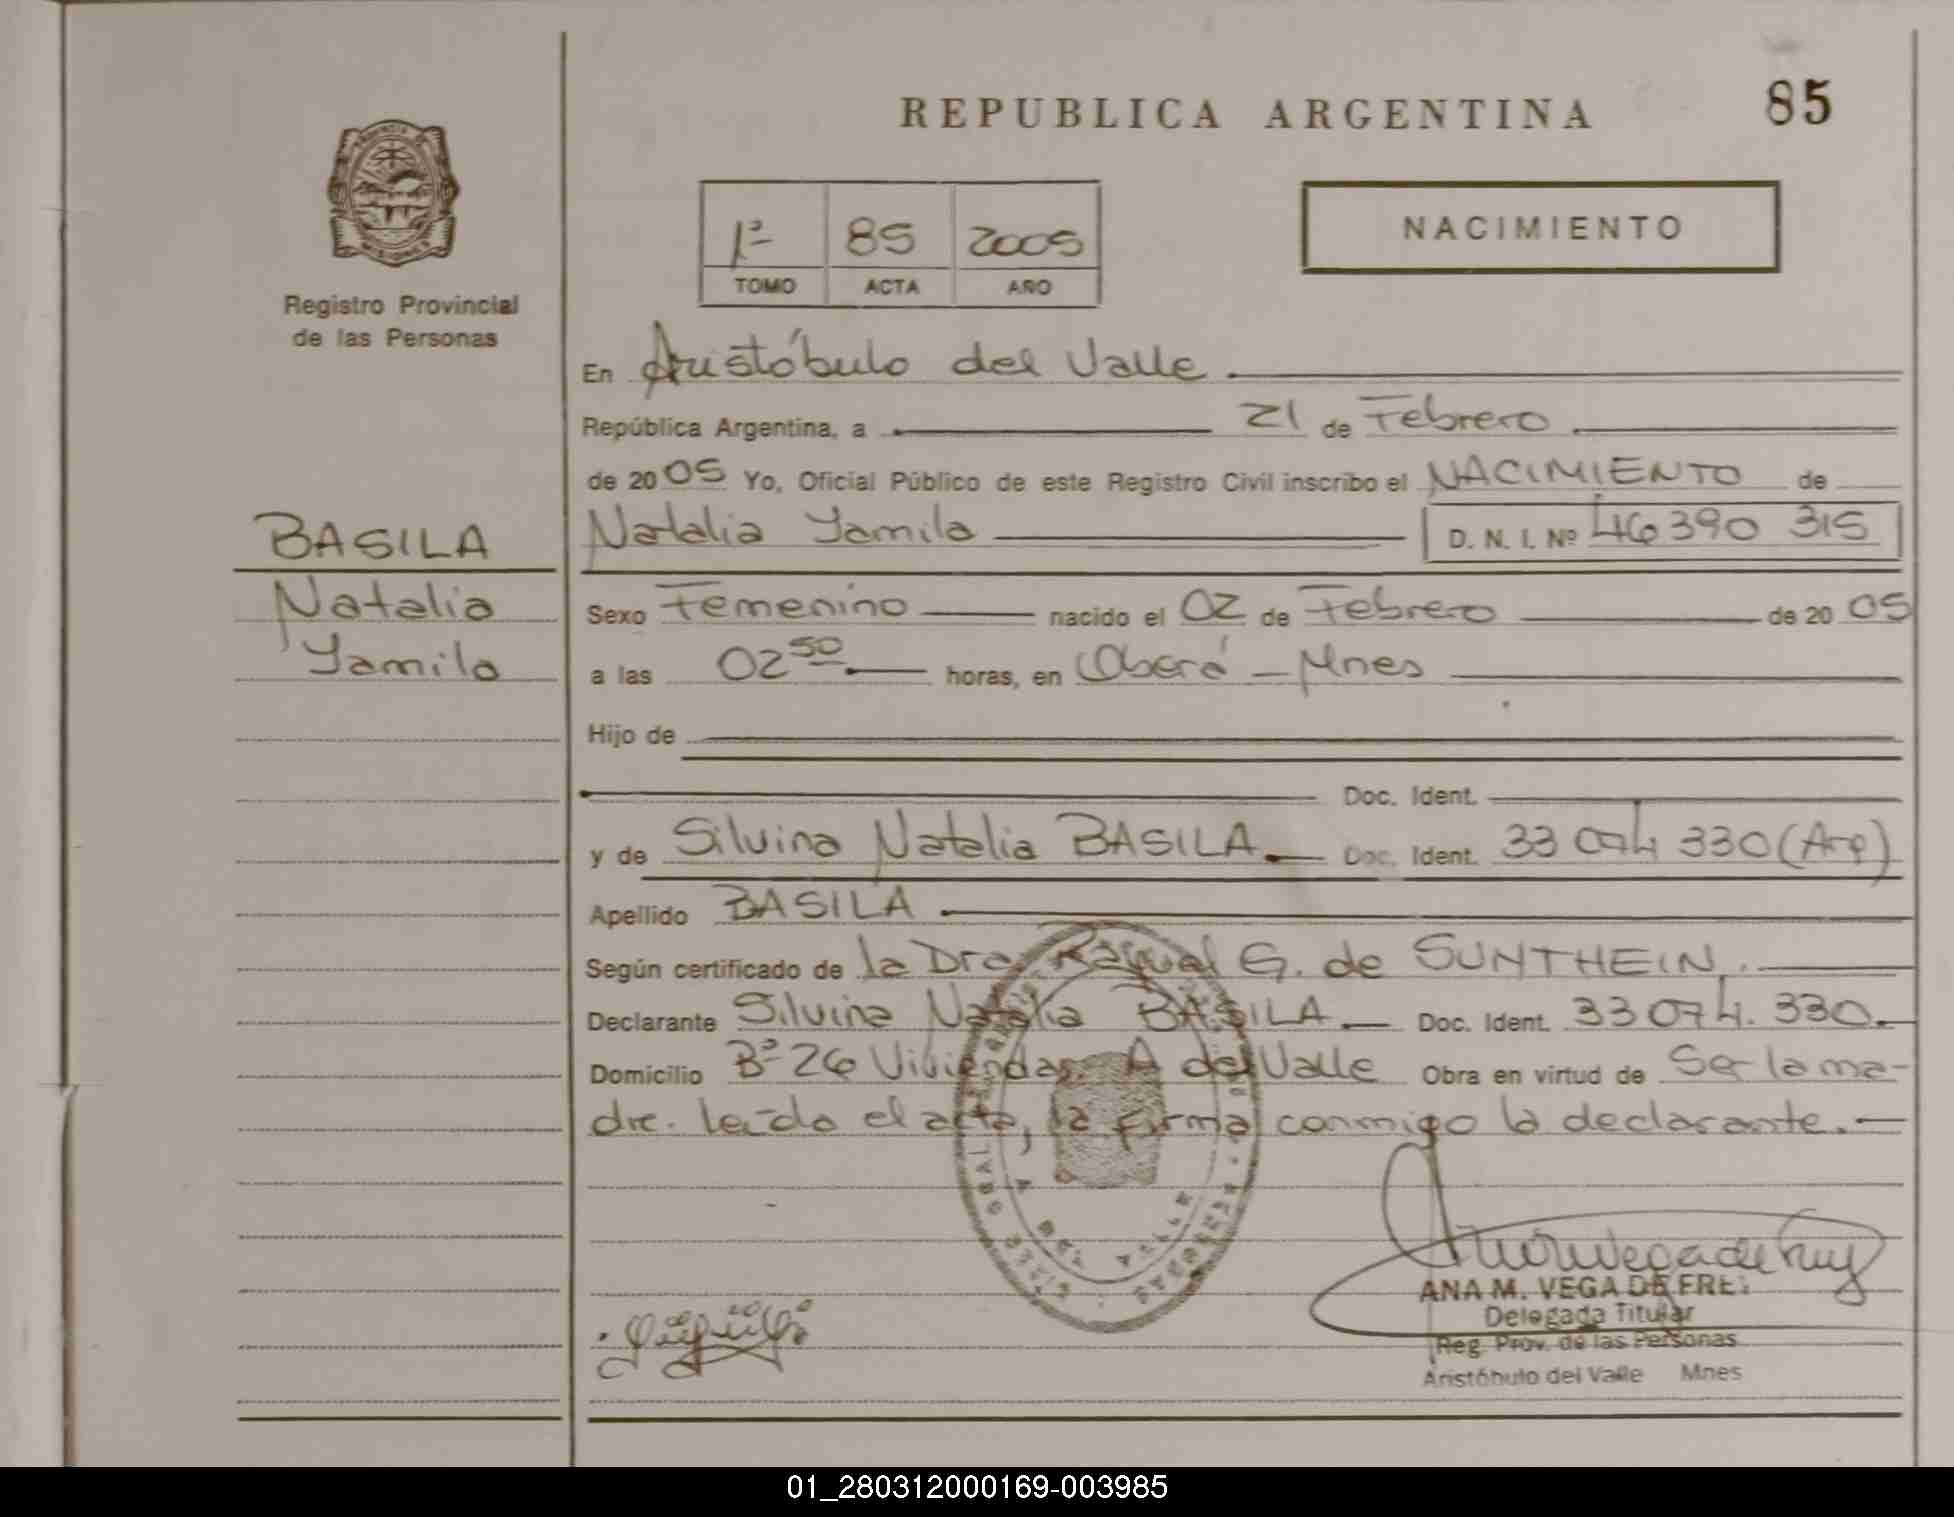 REPUBLICA ARGENTINA
85
Registro Provincial
de las Personas
1º 85 2005
TOMO ACTA AÑO
NACIMIENTO
BASILA
Natalia
Yamila
En Aristóbulo del Valle
República Argentina, a 21 de Febrero
de 2005 Yo, Oficial Público de este Registro Civil inscribo el NACIMIENTO de
Natalia Yamila D. N. I. Nº 46 390 315
Sexo Femenino nacido el 02 de Febrero de 20 05
a las 02 50 horas, en Oberá - Mnes
Hijo de
Doc. Ident.
y de Silvina Natalia BASILA Doc. Ident. 33 074 330 (Arg)
Apellido BASILA
Según certificado de la Dra Raquel G. de SUNTHEIN.
Declarante Silvina Natalia BASILA Doc. Ident. 33 074. 330.
Domicilio Bº 26 Viviendas. A del Valle Obra en virtud de Ser la ma-
dre. Leído el acta, la firma conmigo la declarante.
ANA M. VEGA DE FRE
Delegada Titular
Reg. Prov. de las Personas
Aristóbulo del Valle Mnes
01_280312000169-003985